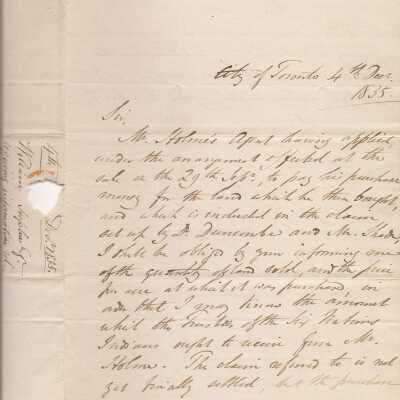 City of Toronto 4th Decr.
1835.
Sir,
Mr. Holme's Agent having applied,
under the arrangement effected at the
sale on the 29th Sept., to pay his purchase
money for the land which he then bought,
and which is included in the claim
set up by Dr. Duncombe and Mr.
I shall be obliged by your informing me
of the quantity of land sold, and the price
per acre at which it was purchased, in
order that I may know the amount
which the Trustees of the Six Nations
Indians ought to receive from Mr.
Holme. The claim referred to is not
yet finally settled, but the purchase
4th Decr. 1835
William